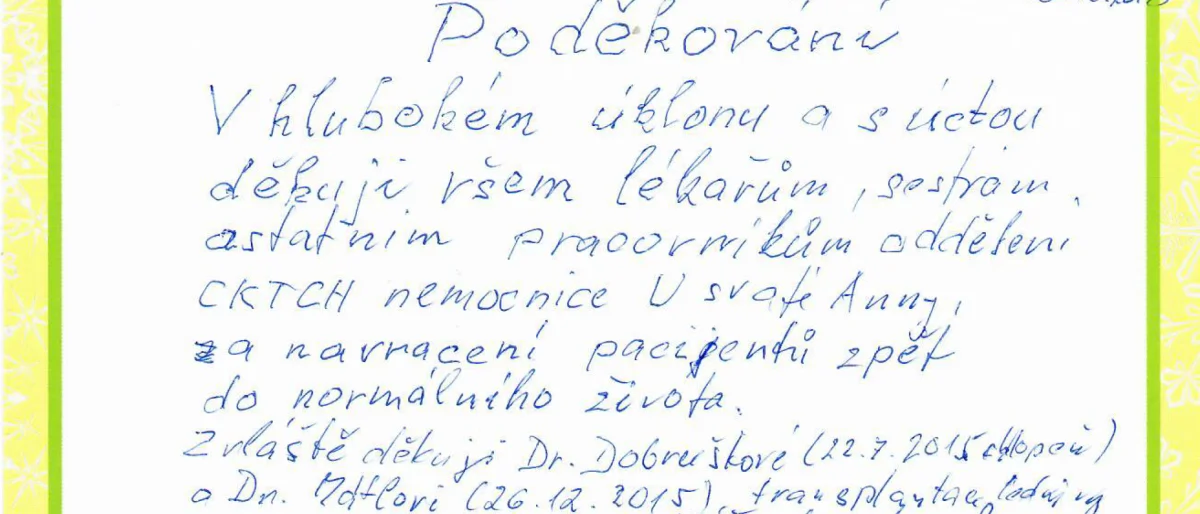 Poděkování
V hlubokém úklonu a s úctou
děkuji všem lékařům, sestrám,
ostatním pracovníkům oddělení
CKTCH nemocnice U svaté Anny,
za navracení pacijentů zpět
do normálního života.
Zvláště děkuji Dr. Dobrušкové (22.7.2015 chlopeň)
a Dr. (26.12.2015), transplantaci